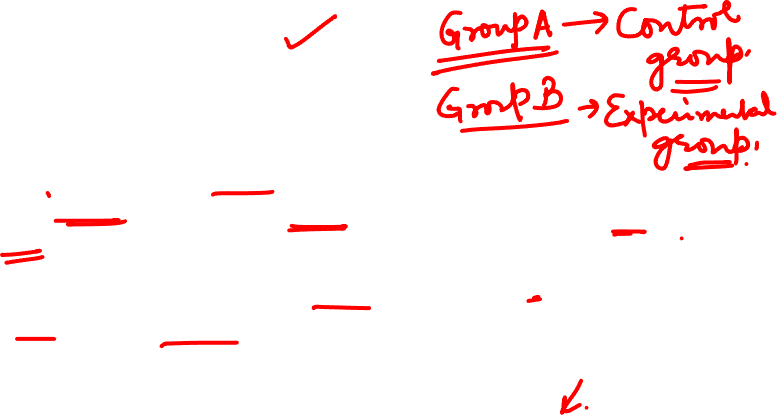 Group A → Control
group.
Group B → Experimental
group.